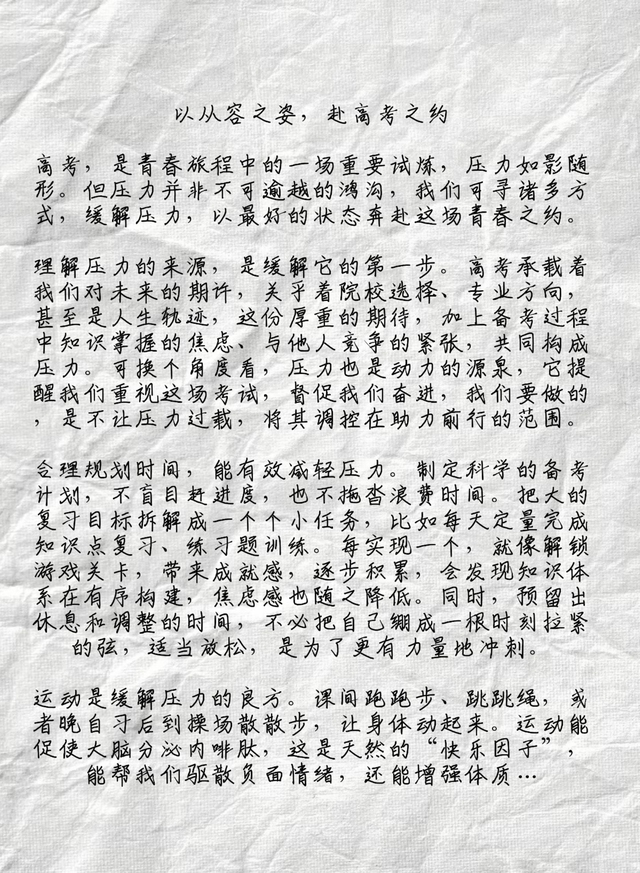 以从容之姿，赴高考之约
高考，是青春旅程中的一场重要试炼，压力如影随
形。但压力并非不可逾越的鸿沟，我们可寻诸多方
式，缓解压力，以最好的状态奔赴这场青春之约。
理解压力的来源，是缓解它的第一步。高考承载着
我们对未来的期许，关乎着院校选择、专业方向，
甚至是人生轨迹，这份厚重的期待，加上备考过程
中知识掌握的焦虑、与他人竞争的紧张，共同构成
压力。可换个角度看，压力也是动力的源泉，它提
醒我们重视这场考试，督促我们奋进，我们要做的
，是不让压力过载，将其调控在助力前行的范围。
合理规划时间，能有效减轻压力。制定科学的备考
计划，不盲目赶进度，也不拖沓浪费时间。把大的
复习目标拆解成一个个小任务，比如每天定量完成
知识点复习、练习题训练。每实现一个，就像解锁
游戏关卡，带来成就感，逐步积累，会发现知识体
系在有序构建，焦虑感也随之降低。同时，预留出
休息和调整的时间，不必把自己绷成一根时刻拉紧
的弦，适当放松，是为了更有力量地冲刺。
运动是缓解压力的良方。课间跑跑步、跳跳绳，或
者晚自习后到操场散散步，让身体动起来。运动能
促使大脑分泌内啡肽，这是天然的“快乐因子”，
能帮我们驱散负面情绪，还能增强体质…